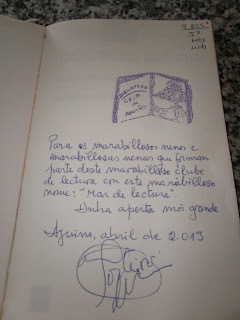 BIBLIOTECA
CEIP de
AGUIÑO
Para os marabillosos nenos e
marabillosas nenas que forman
parte deste marabilloso clube
de lectura con este marabilloso
nome: "Mar de lectura".
Unha aperta moi grande
Aguiño, abril de 2.013